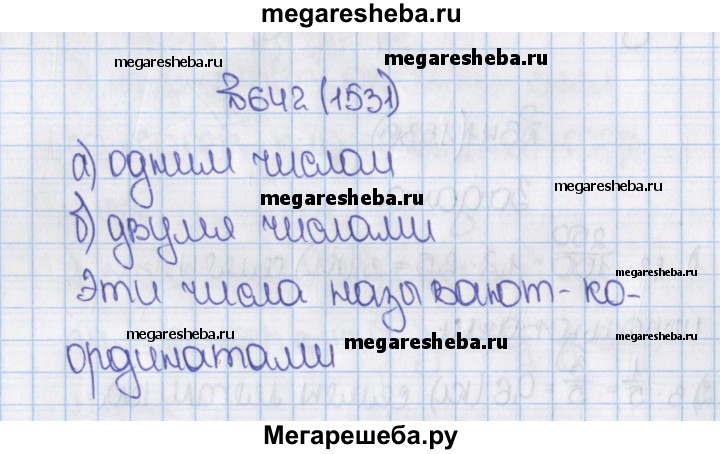 megaresheba.ru
megaresheba.ru
megaresheba.ru
megaresheba.ru
№642 (1531)
а) одним числом
megaresheba.ru
megaresheba.ru
б) двумя числами
Эти числа называют-ко-
megaresheba.ru
megaresheba.ru
megaresheba.ru
ординатами
Мегарешеба.ру